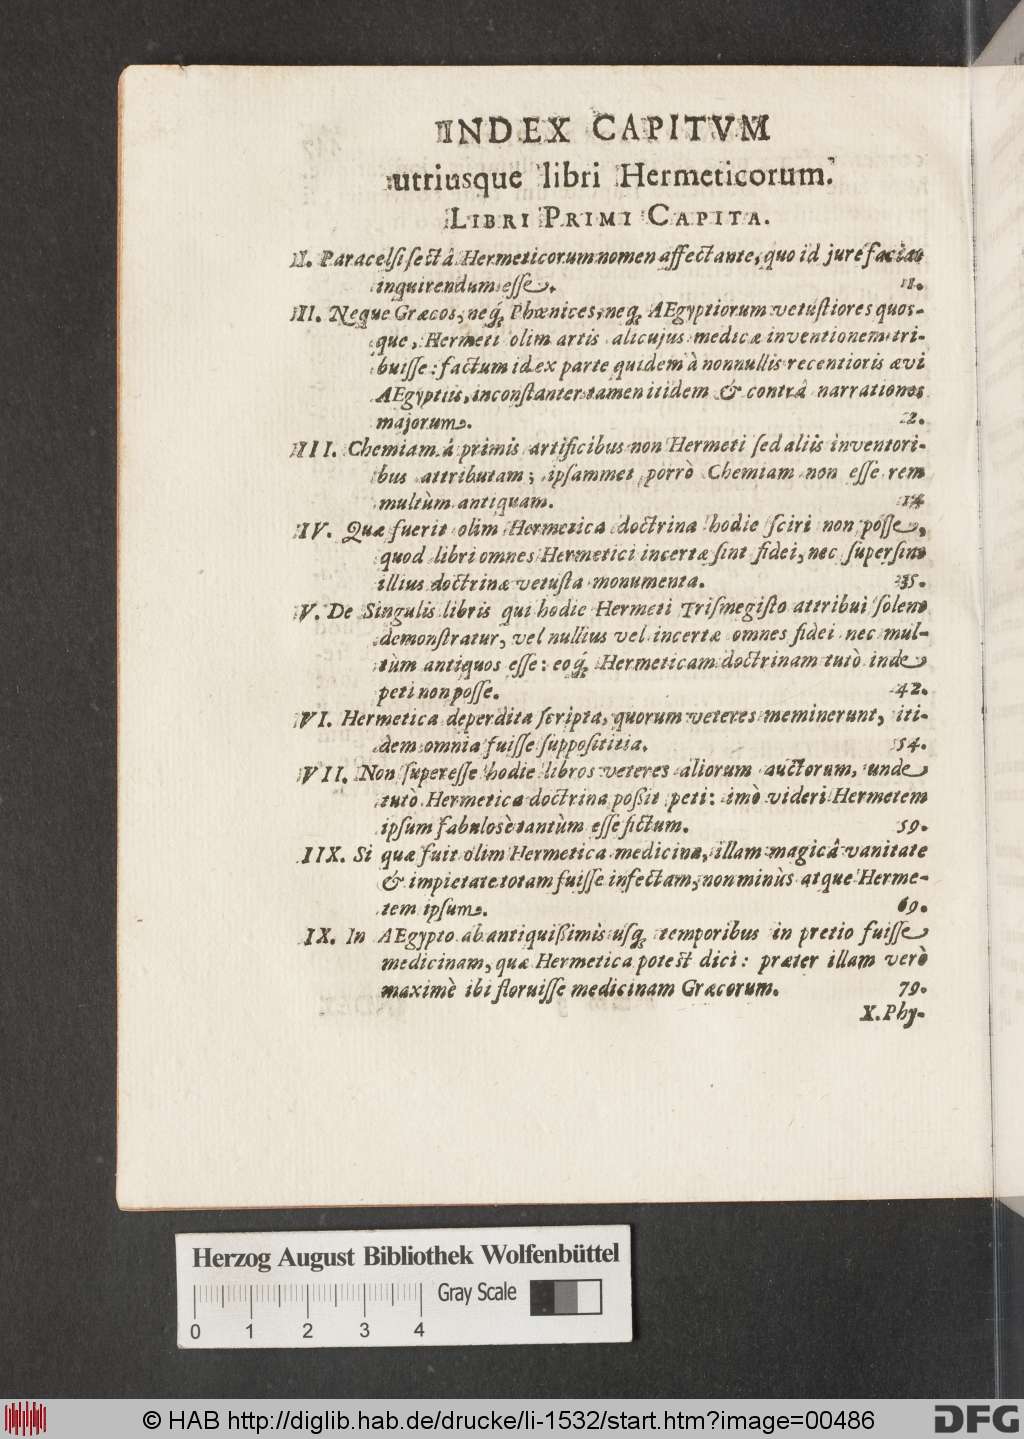 INDEX CAPITVM
utriusque libri Hermeticorum.
LIBRI PRIMI CAPITA.
I. Paracelsi sectâ Hermeticorum nomen affectante, quo id jure faciat
inquirendum esse. 1.
II. Neque Græcos, neq; Phœnices, neq; AEgyptiorum vetustiores quos-
que, Hermeti olim artis alicujus medicæ inventionem tri-
buisse: factum id ex parte quidem à nonnullis recentioris ævi
AEgyptiis, inconstanter tamen itidem & contrâ narrationes
majorum. 2.
III. Chemiam á primis artificibus non Hermeti sed aliis inventori-
bus attributam; ipsammet porrò Chemiam non esse rem
multùm antiquam. 14
IV. Quæ fuerit olim Hermetica doctrina hodie sciri non posse,
quod libri omnes Hermetici incertæ sint fidei, nec supersint
illius doctrinæ vetusta monumenta. 35.
V. De Singulis libris qui hodie Hermeti Trismegisto attribui solent
demonstratur, vel nullius vel incertæ omnes fidei nec mul-
tùm antiquos esse: eoq́; Hermeticam doctrinam tutò inde
peti non posse. 42.
VI. Hermetica deperdita scripta, quorum veteres meminerunt, iti-
dem omnia fuisse supposititia. 54.
VII. Non superesse hodie libros veteres aliorum auctorum, unde
tutò Hermetica doctrina poßit peti: imò videri Hermetem
ipsum fabulosè tantùm esse fictum. 59.
IIX. Si quæ fuit olim Hermetica medicina, illam magicâ vanitate
& impietate totam fuisse infectam, non minùs atque Herme-
tem ipsum. 69.
IX. In AEgypto ab antiquißimis usq; temporibus in pretio fuisse
medicinam, quæ Hermetica potest dici: præter illam verò
maximè ibi floruisse medicinam Græcorum. 79.
X. Phy-
Herzog August Bibliothek Wolfenbüttel
Gray Scale
0 1 2 3 4
© HAB http://diglib.hab.de/drucke/li-1532/start.htm?image=00486
DFG